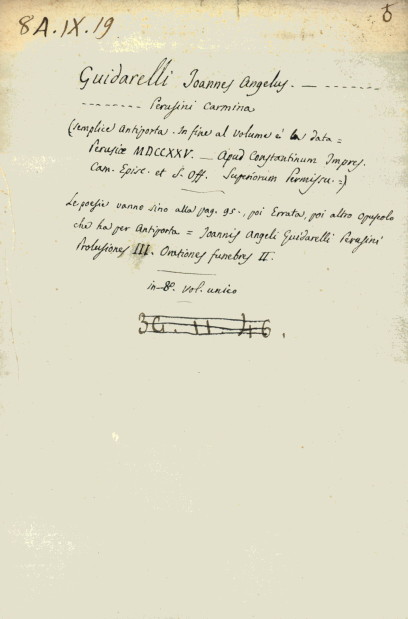 8A.IX.19
6
Guidarelli Joannes Angelus. — --------
-------- Perusini Carmina
(semplice Antiporta. In fine al volume è la data =
Perusiæ MDCCXXV. — Apud Constantinum Impres.
Cam. Episc. et S. Off. Superiorum Permissu. =)
Le poesie vanno sino alla pag. 95., poi Errata, poi altro opuscolo
che ha per Antiporta = Joannis Angeli Guidarelli Perusini
Prolusiones III. Orationes funebres II.
in-8°. vol. unico
3G. 11. 46.